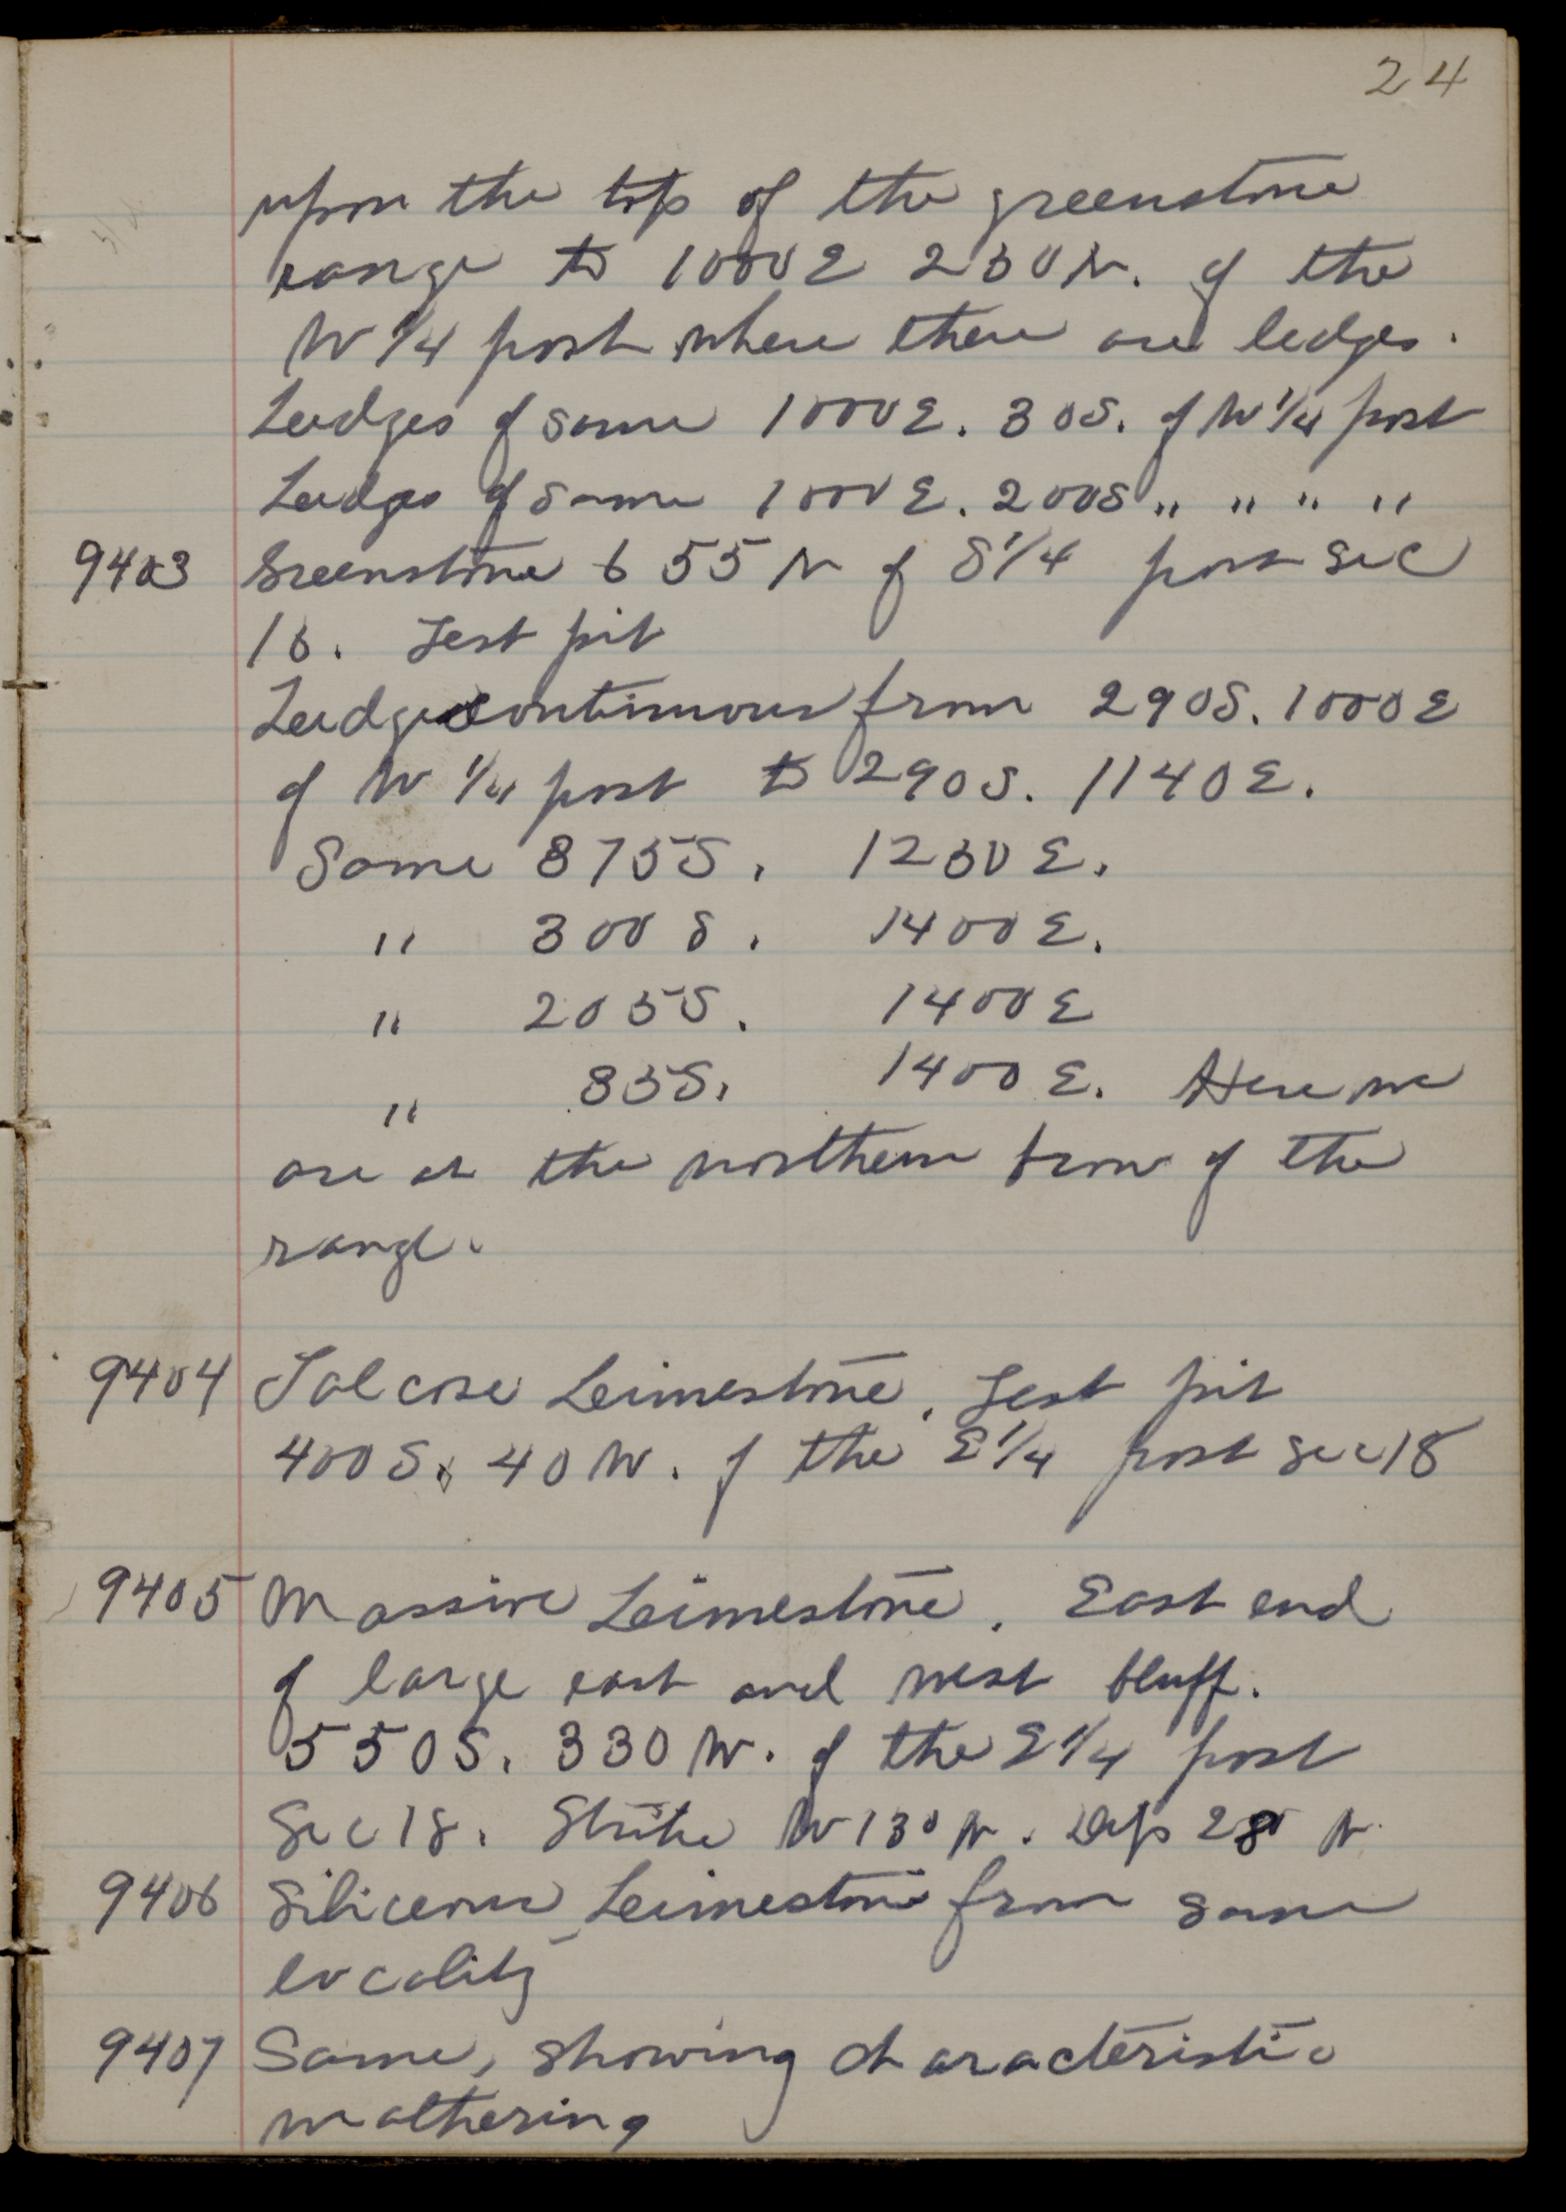 24
upon the top of the greenstone
range to 1000 E 230 N. of the
W 1/4 post where there are ledges.
Ledges of same 1000 E. 30 S. of W 1/4 post
Ledges of same 1000 E. 200 S " " " "
9403 Greenstone 655 N of S 1/4 post Sec
16. Test pit
Ledges continuous from 290 S. 1000 E
of W 1/4 post to 290 S. 1140 E.
Same 375 S. 1230 E.
" 300 S. 1400 E.
" 205 S. 1400 E
" 35 S. 1400 E. Here we
are at the northern brow of the
range.
9404 Talcose Leimestone. Test pit
400 S. 40 W. of the E 1/4 post Sec 18
9405 Massive Leimestone. East end
of large east and west bluff.
550 S. 330 W. of the E 1/4 post
Sec 18. Strike W 13° N. Dip 28° N.
9406 Siliceous Leimestone from same
locality
9407 Same, showing characteristic
weathering